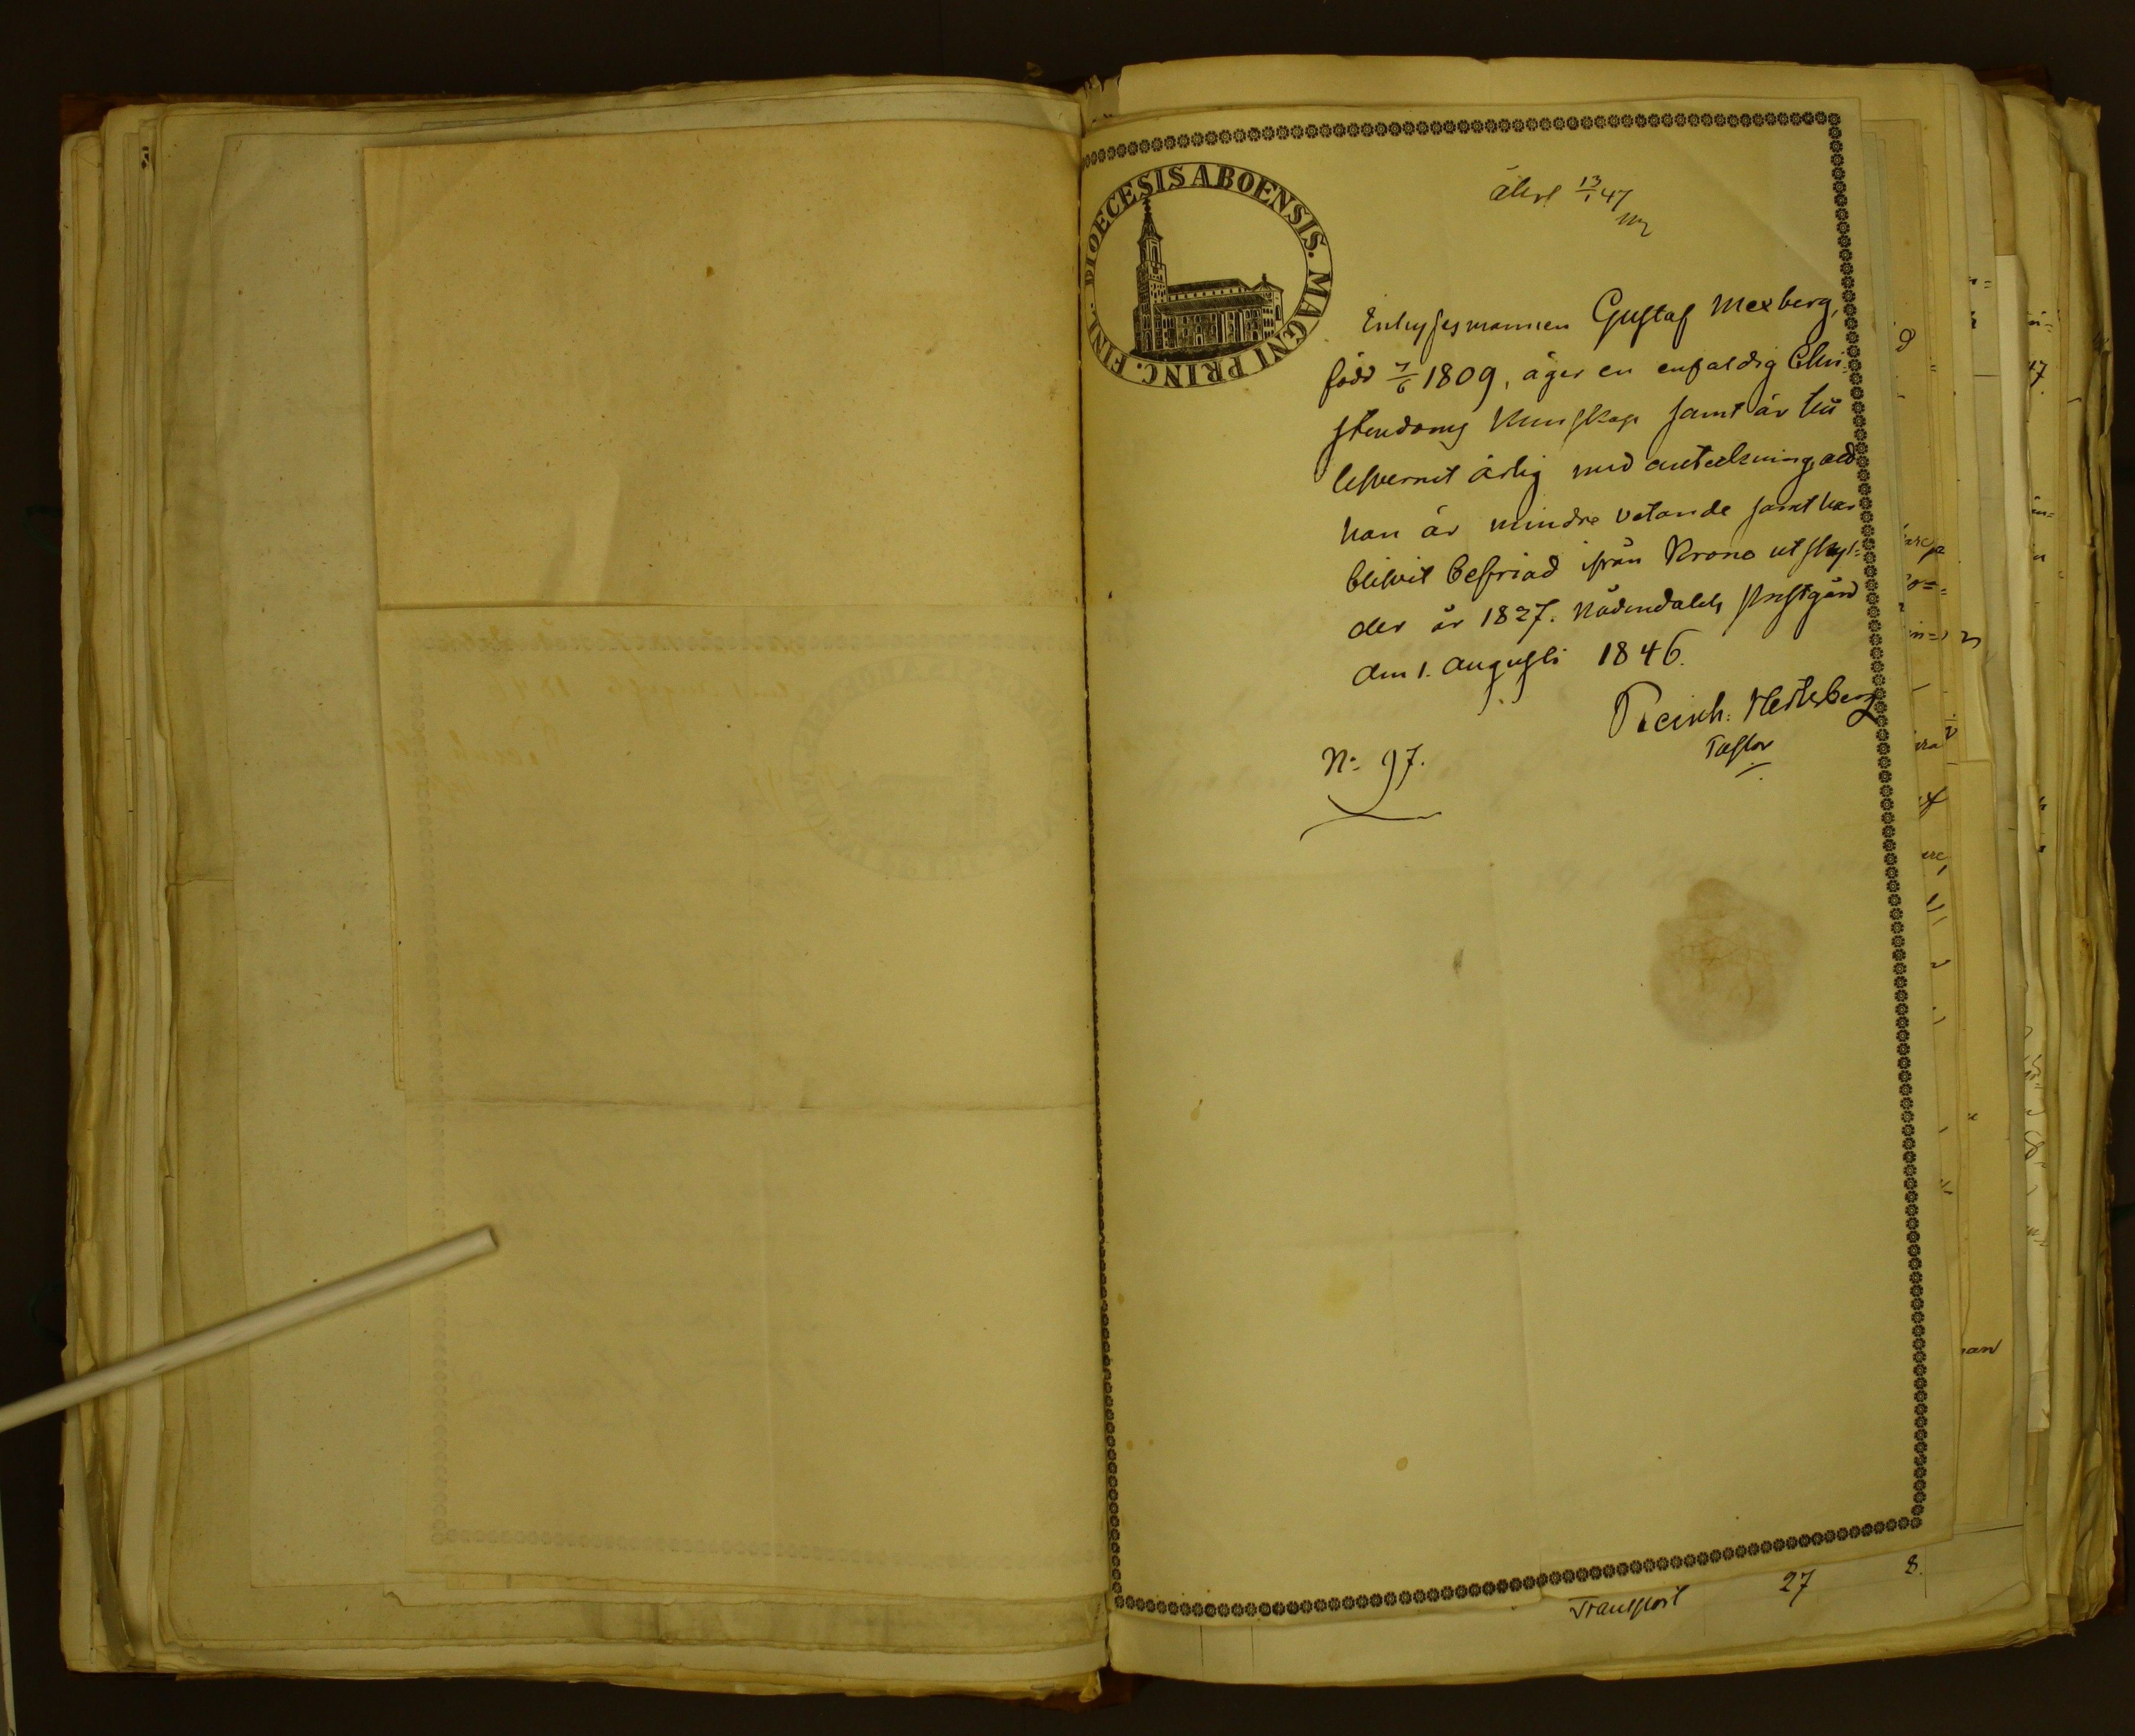 DIOECESIS ABOENSIS. MAGNI PRINC. FINL.
återl 13/1 47
Inhysesmannen Gustaf Mexberg,
född 7/6 1809, äger en enfaldig Chri-
stendoms kunskap samt är till
lefvernet ärlig med anteckning, att
han är mindre vetande samt har
blifvit befriad ifrån Krono utskyl=
der år 1827. Nådendals Prestgård
den 1. Augusti 1846.
Reinh. Hertzberg
Pastor
No 97.
Transport 27 8.